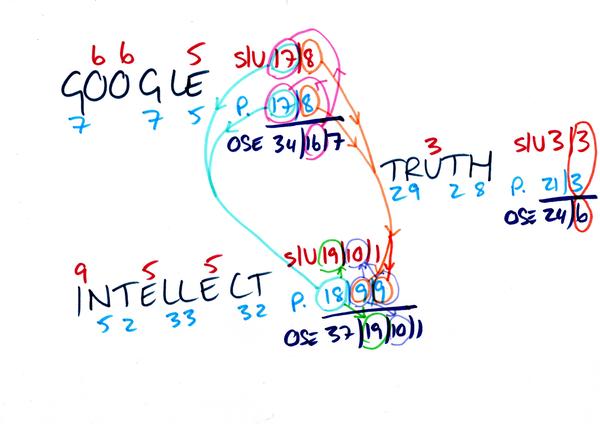 6 6 5
GOOGLE
7 7 5
S/U 17|8
P. 17|8
OSE 34|16|7
3
TRUTH
29 28
S/U 3|3
P. 21|3
OSE 24|6
9 5 5
INTELLECT
52 33 32
S/U 19|10|1
P. 18|9|9
OSE 37|19|10|1